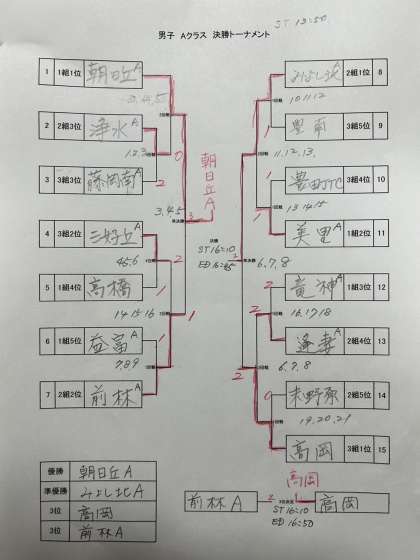 ST 13:50
男子 Aクラス 決勝トーナメント
1 1組1位 朝日丘A
2 2組3位 浄水A
3 3組3位 藤岡南A
4 3組2位 三好丘A
5 1組4位 高橋
6 1組5位 益富A
7 2組2位 前林A
みよし北A 2組1位 8
豊南 3組5位 9
3組4位 10
美里A 1組2位 11
竜神A 1組3位 12
逢妻A 2組4位 13
末野原 2組5位 14
高岡 3組1位 15
3.4.5
1.2.3
0
2
3.4.5
4.5.6
2
1
14.15.16
1
7.8.9
1
朝日丘A
3
決勝
ST 16:10
準決勝
準決勝
6.7.8
10.11.12
1
11.12.13.
1
13.14.15
1
2
16.17.18
2
6.7.8
2
0
19.20.21
1
優勝 朝日丘A
準優勝 みよし北A
3位 高岡
3位 前林A
高岡
前林A 2 3位決定 高岡
ST 16:10
ED 16:50